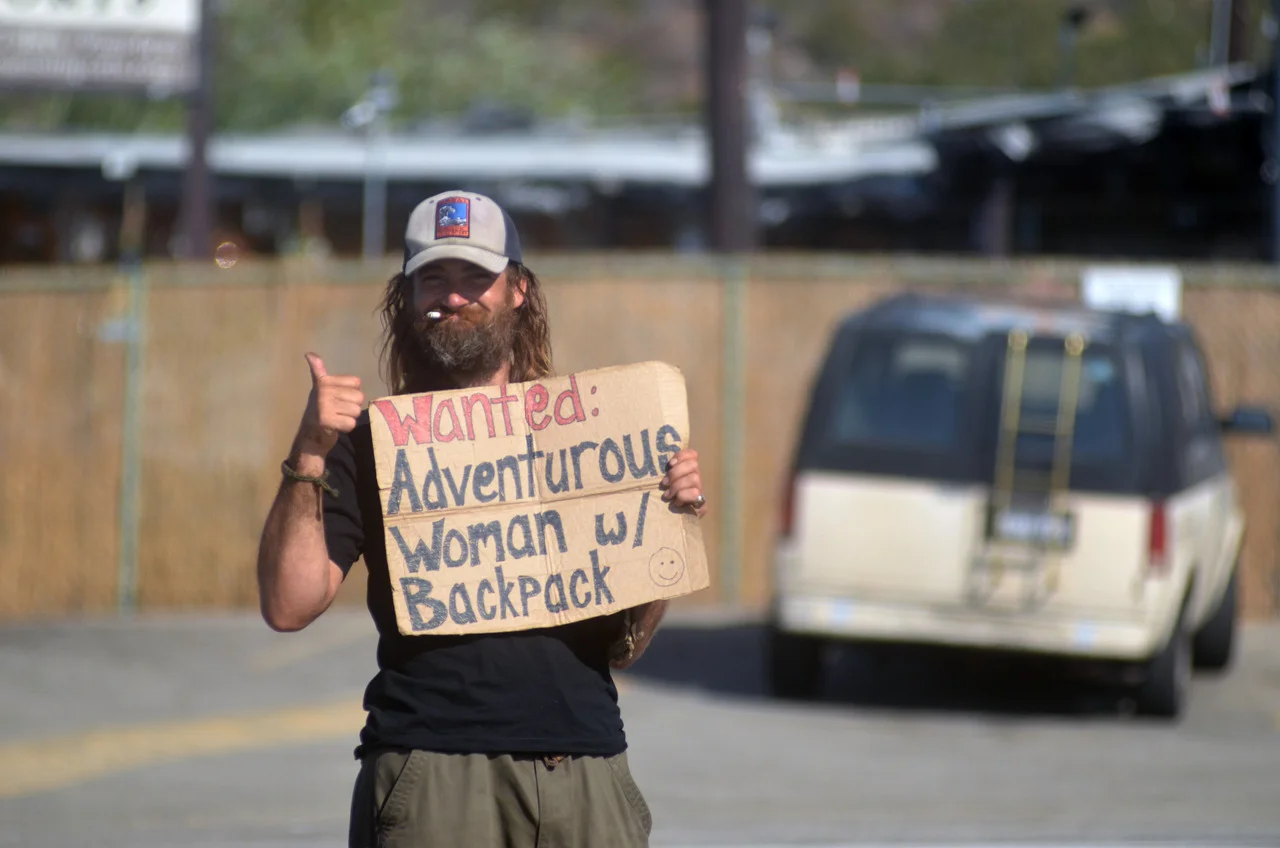 Wanted:
Adventurous
Woman w/
Backpack